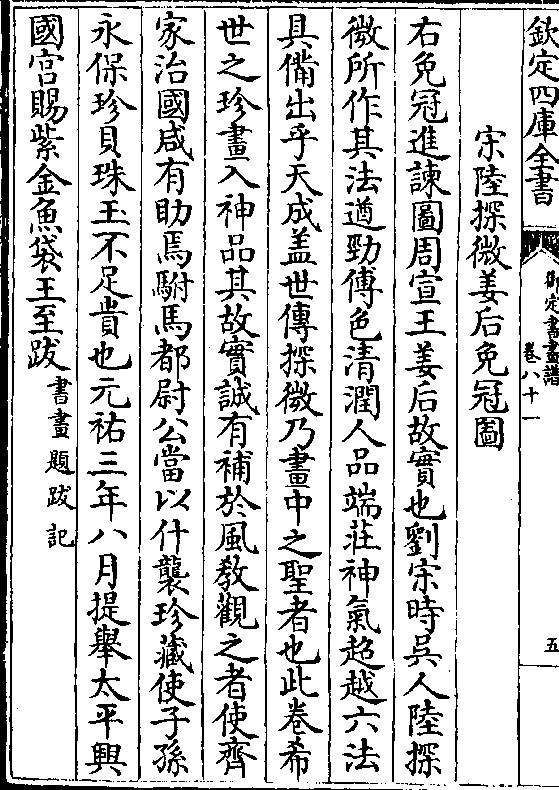 欽定四庫全書
御定書畫譜
卷八十一
五
宋陸探微姜后免冠圖
右免冠進諫圖周宣王姜后故實也劉宋時吳人陸探
微所作其法遒勁傅色清潤人品端莊神氣超越六法
具備出乎天成盖世傳探微乃畫中之聖者也此卷希
世之珍畫入神品其故實誠有補於風教觀之者使齊
家治國咸有助焉駙馬都尉公當以什襲珍藏使子孫
永保珍貝珠玉不足貴也元祐三年八月提舉太平興
國宫賜紫金魚袋王至跋書畫題跋記